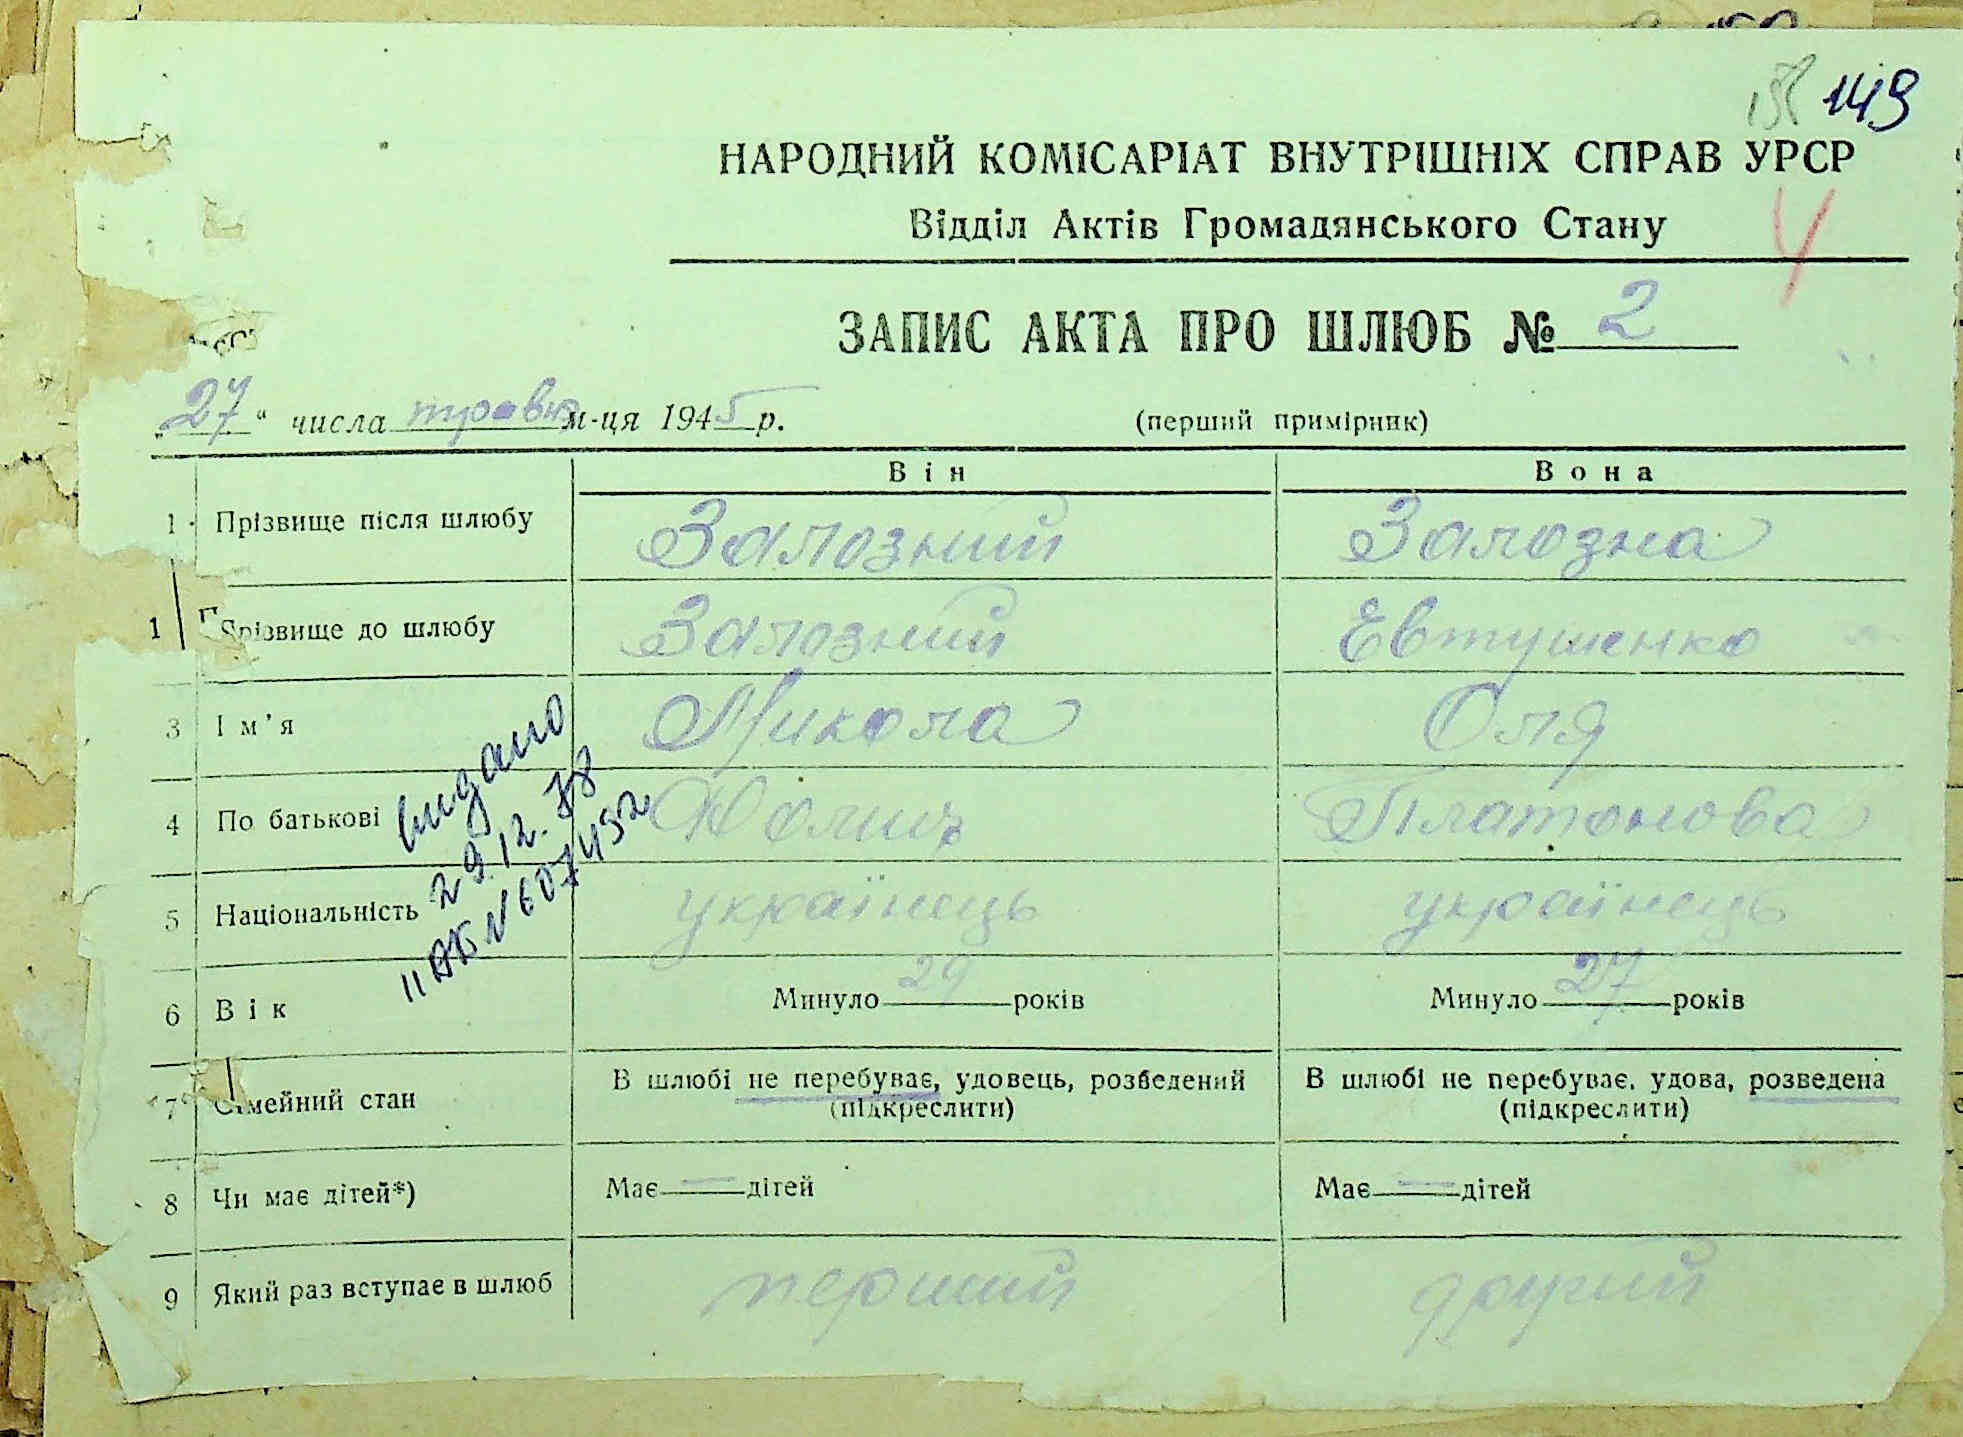 149
НАРОДНИЙ КОМІСАРІАТ ВНУТРІШНІХ СПРАВ УРСР
Відділ Актів Громадянського Стану
ЗАПИС АКТА ПРО ШЛЮБ № 2
„27“ числа травня м-ця 1945 р. (перший примірник)
Він Вона
1 Прізвище після шлюбу Залозний Залозна
1 Прізвище до шлюбу Залозний Евтушенко
3 Ім'я Микола Оля
4 По батькові Платонова
5 Національність українець українець
6 Вік Минуло 29 років Минуло 27 років
7 Сімейний стан В шлюбі не перебуває, удовець, розведений В шлюбі не перебуває, удова, розведена
(підкреслити) (підкреслити)
8 Чи має дітей*) Має — дітей Має — дітей
9 Який раз вступає в шлюб перший другий
видано
29.12.78
II АБ № 607432